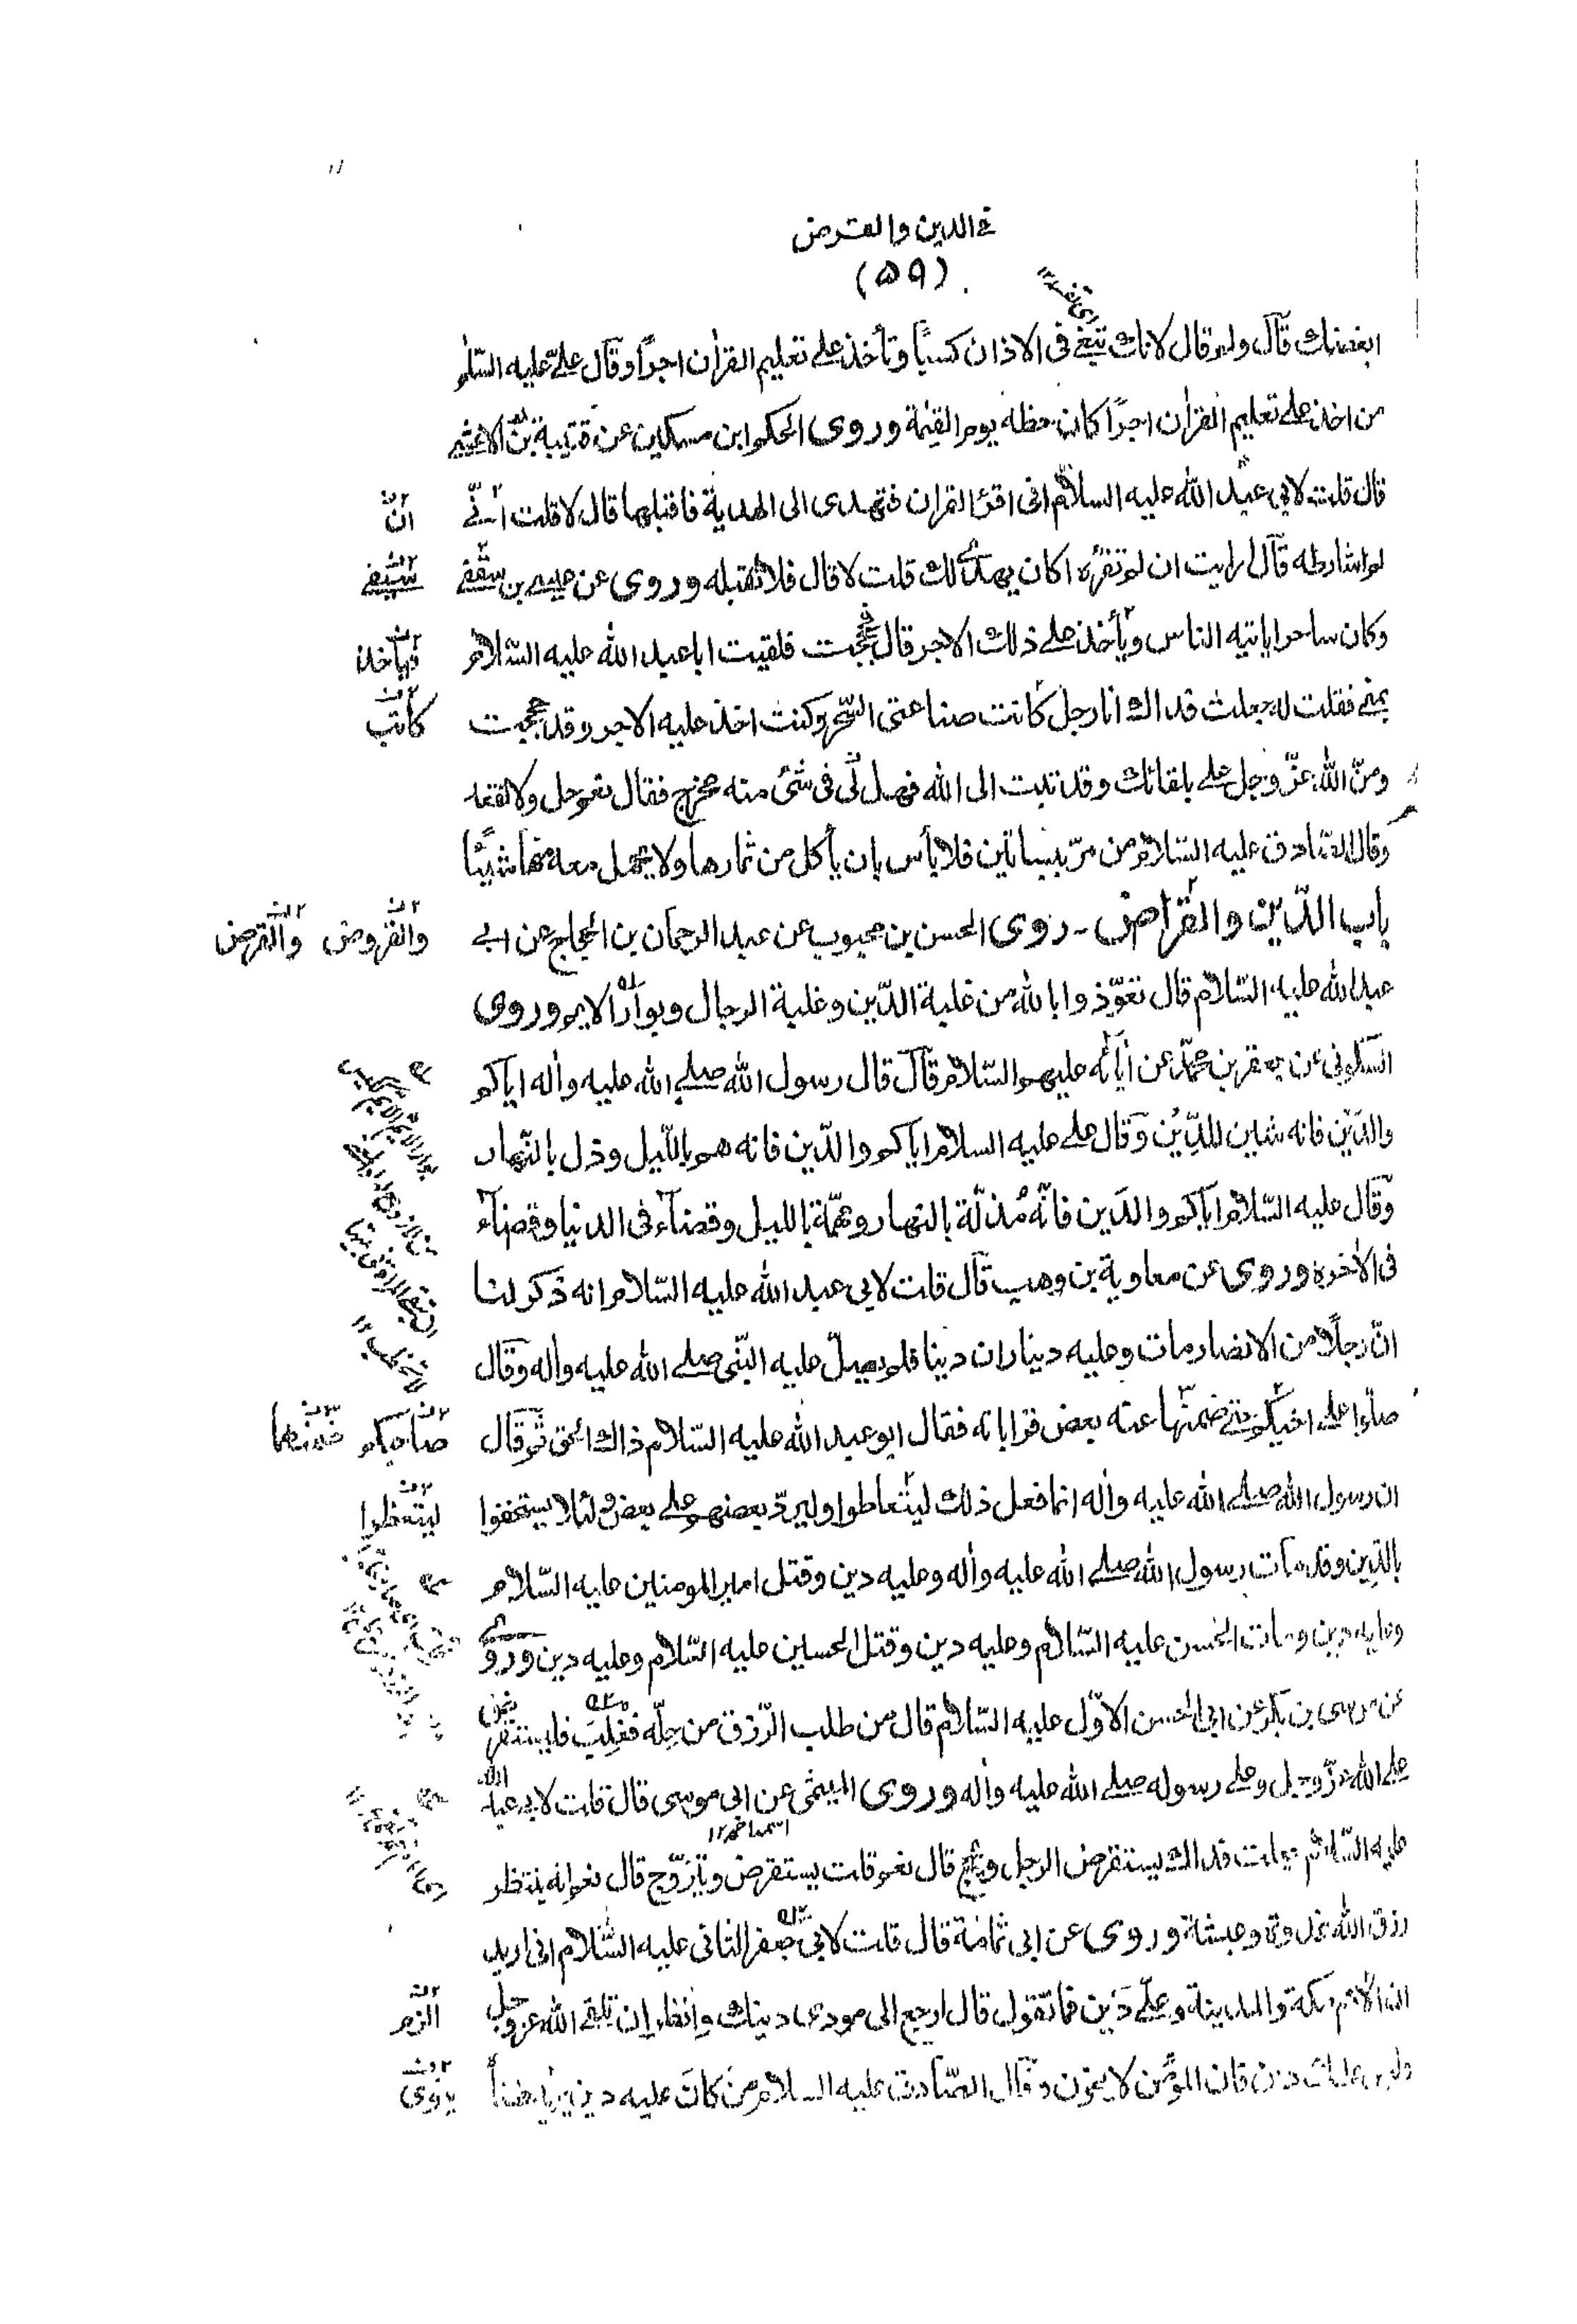 في الدين والقرض
(٥٩)
ابغضناك قال ولم قال لانك تبغي في الاذان كسبًا وتأخذ على تعليم القرآن اجرًا وقال عليّ عليه السّلم
من اخذ على تعليم القرآن اجرًا كان حظه يوم القيٰمة وروى الحكم ابن مسكين عن قتيبة بن الاعشى
قال قلت لابي عبد الله عليه السلام انى اقرئ القرآن فتهدى الى الهدية فاقبلها قال لا قلت انّي
ان
لم اشارطه قال ارايت ان لم تقرئه اكان يهدى لك قلت لا قال فلا تقبله وروى عن عيسى بن سقفى
سيفى
وكان ساحرا ياتيه الناس ويأخذ على ذلك الاجر قال فحججت فلقيت ابا عبد الله عليه السّلام
فيأخذ
بمنى فقلت له جعلت فداك انا رجل كانت صناعتى السّحر وكنت اخذ عليه الاجر وقد حججت
كانت
ومنّ الله عزّ وجل على بلقائك وقد تبت الى الله فهل لّى فى شئ منه مخرج فقال نعم حل ولا تعقد
وقال الصّادق عليه السّلام من مرّ ببساتين فلا بأس بان يأكل من ثمارها ولا يحمل معه منها شيئًا
باب الدّين والقراض ـ روى الحسن بن محبوب عن عبد الرحمان بن الحجاج عن ابي
والقروض والقرض
عبد الله عليه السّلام قال تعوّذوا بالله من غلبة الدّين وغلبة الرجال وبوار الايم وروى
السكونى عن جعفر بن محمّد عن آبائه عليهم السّلام قال قال رسول الله صلى الله عليه وآله اياكم
والدّين فانه شين للدِّين وقال على عليه السلام اياكم والدّين فانه هم بالليل وذل بالنّهار
وقال عليه السّلام اياكم والدّين فانّه مُذلّة بالنهار ومهمّة بالليل وقضاء فى الدنيا وقضاء
فى الآخرة وروى عن معاوية بن وهب قال قلت لابى عبد الله عليه السّلام انه ذكر لنا
انّ رجلًا من الانصار مات وعليه ديناران دينا فلم يصلّ عليه النّبى صلى الله عليه وآله وقال
صلّوا على اخيكم حتى ضمنها عنه بعض قراباته فقال ابو عبد الله عليه السّلام ذاك الحق ثم قال
صاحبكم ضمنهما
ان رسول الله صلى الله عليه وآله انما فعل ذلك ليتعاطوا وليردّ بعضهم على بعض ولئلا يستخفوا
ليتعظوا
بالدّين وقد مات رسول الله صلى الله عليه وآله وعليه دين وقتل امير المومنين عليه السّلام
وعليه دين ومات الحسن عليه السّلام وعليه دين وقتل الحسين عليه السّلام وعليه دين وروى
عن موسى بن بكر عن ابى الحسن الاوّل عليه السّلام قال من طلب الرّزق من حِلّه فغلب فليستقرض
على الله عزّ وجل وعلى رسوله صلى الله عليه وآله وروى الميثمى عن ابى موسى قال قلت لابى عبد الله
عليه السّلام جعلت فداك يستقرض الرجل ويحج قال نعم قلت يستقرض ويتزوّج قال نعم انه ينتظر
رزق الله غدوة وعيشة وروى عن ابى ثمامة قال قلت لابى جعفر الثانى عليه السّلام انى اريد
ان الازم مكة والمدينة وعليّ دَين فما تقول قال ارجع الى مودى دينك وانظر ان تلقى الله عز وجل
الزم
وليس عليك دين فان المؤمن لا يخون وقال الصّادق عليه السلام من كان عليه دين
ينوى